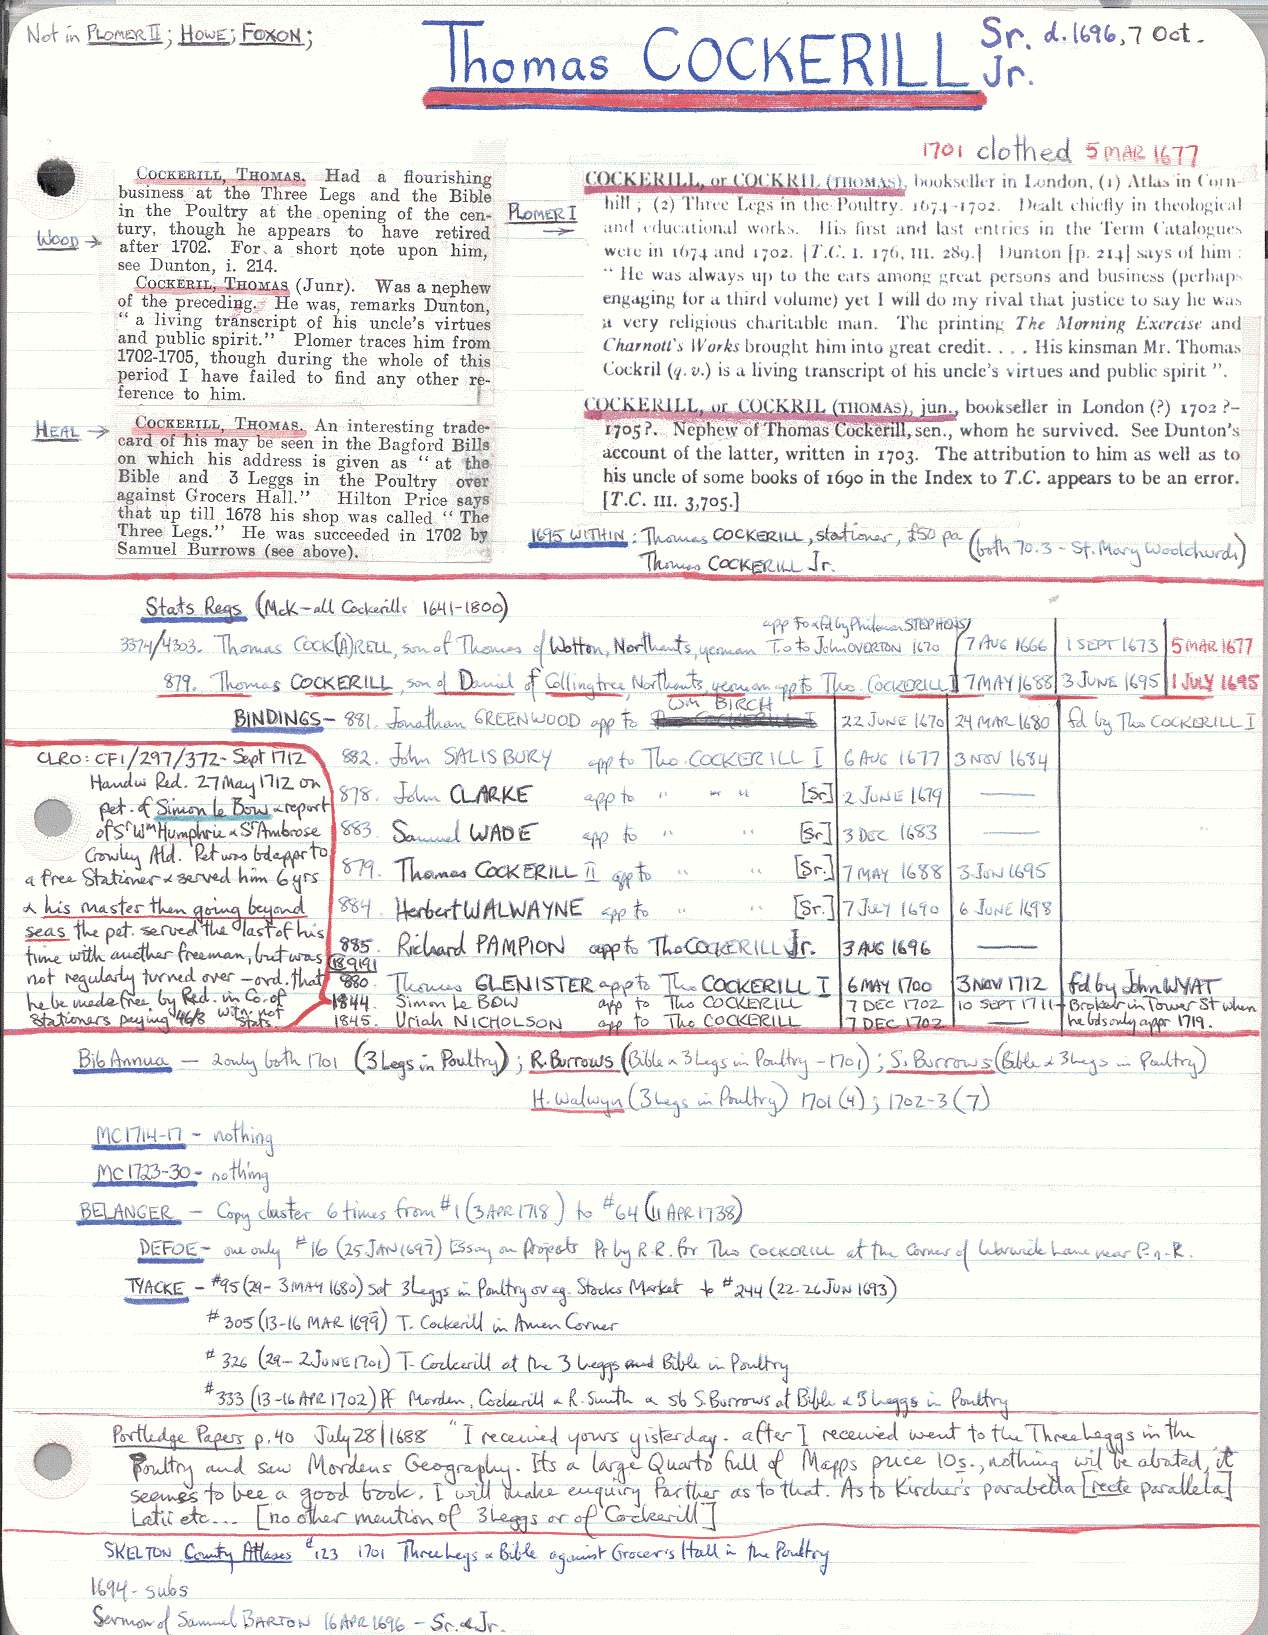 Not in PLOMER II; HOWE; FOXON;
Thomas COCKERILL Sr. d. 1696, 7 Oct.
Jr.
1701 clothed 5 MAR 1677
WOOD →
COCKERILL, THOMAS. Had a flourishing
business at the Three Legs and the Bible
in the Poultry at the opening of the cen-
tury, though he appears to have retired
after 1702. For a short note upon him,
see Dunton, i. 214.
COCKERIL, THOMAS (Junr). Was a nephew
of the preceding. He was, remarks Dunton,
" a living transcript of his uncle's virtues
and public spirit." Plomer traces him from
1702-1705, though during the whole of this
period I have failed to find any other re-
ference to him.
HEAL →
COCKERILL, THOMAS. An interesting trade-
card of his may be seen in the Bagford Bills
on which his address is given as " at the
Bible and 3 Leggs in the Poultry over
against Grocers Hall." Hilton Price says
that up till 1678 his shop was called " The
Three Legs." He was succeeded in 1702 by
Samuel Burrows (see above).
PLOMER I →
COCKERILL, or COCKRIL (THOMAS), bookseller in London, (1) Atlas in Corn-
hill ; (2) Three Legs in the Poultry. 1674-1702. Dealt chiefly in theological
and educational works. His first and last entries in the Term Catalogues
were in 1674 and 1702. [T.C. I. 176, III. 289.] Dunton [p. 214] says of him :
" He was always up to the ears among great persons and business (perhaps
engaging for a third volume) yet I will do my rival that justice to say he was
a very religious charitable man. The printing The Morning Exercise and
Charnott's Works brought him into great credit. . . . His kinsman Mr. Thomas
Cockril (q.v.) is a living transcript of his uncle's virtues and public spirit ".
COCKERILL, or COCKRIL (THOMAS), jun., bookseller in London (?) 1702 ?-
1705 ?. Nephew of Thomas Cockerill, sen., whom he survived. See Dunton's
account of the latter, written in 1703. The attribution to him as well as to
his uncle of some books of 1690 in the Index to T.C. appears to be an error.
[T.C. III. 3,705.]
1695 WITHIN: Thomas COCKERILL, stationer, £50 pa (both 70.3 - St. Mary Woolchurch)
Thomas COCKERILL Jr.
Stats Regs (McK - all Cockerills 1641-1800)
app to & fd by Philemon STEPHENS/
3374/4303. Thomas COCK(A)RELL, son of Thomas of Wotton, Northants, yeoman T.o to John OVERTON 1670 7 AUG 1666 1 SEPT 1673 5 MAR 1677
879. Thomas COCKERILL, son of Daniel of Collingtree, Northants, yeoman app to Tho COCKERILL I 7 MAY 1688 3 JUNE 1695 1 JULY 1695
BINDINGS - 881. Jonathan GREENWOOD app to Wm BIRCH 22 JUNE 1670 24 MAR 1680 fd by Tho COCKERILL I
882. John SALISBURY app to Tho. COCKERILL I 6 AUG 1677 3 NOV 1684
878. John CLARKE app to " " " [Sr] 2 JUNE 1679 ——
883. Samuel WADE app to " " [Sr] 3 DEC 1683 ——
879. Thomas COCKERILL II app to " " [Sr.] 7 MAY 1688 3 JUN 1695
884. Herbert WALWAYNE app to " " [Sr.] 7 JULY 1690 6 JUNE 1698
885. Richard PAMPION app to Tho COCKERILL Jr. 3 AUG 1696 ——
880. Thomas GLENISTER app to Tho COCKERILL I 6 MAY 1700 3 NOV 1712 fd by John WYAT
1844. Simon le BOW app to Tho COCKERILL 7 DEC 1702 10 SEPT 1711 Broker in Tower St when
1845. Uriah NICHOLSON app to Tho COCKERILL 7 DEC 1702 —— he bds only appr 1719.
CLRO: CF1/297/372 - Sept 1712
Handw Red. 27 May 1712 on
pet. of Simon le Bow & report
of Sr Wm Humphrie & Sr Ambrose
Crowley Ald. Pet was bd appr to
a free Stationer & served him 6 yrs
& his master then going beyond
seas the pet. served the last of his
time with another freeman, but was
not regularly turned over - ord. that
he be made free by Red. in Co. of
Stationers paying 46/8 with not
Stats.
Bib Annua - 2 only both 1701 (3 Legs in Poultry); R. Burrows (Bible & 3 Legs in Poultry - 1701); S. Burrows (Bible & 3 Legs in Poultry)
H. Walwyn (3 Legs in Poultry) 1701 (4); 1702-3 (7)
MC 1714-17 - nothing
MC 1723-30 - nothing
BELANGER - Copy cluster 6 times from #1 (3 APR 1718) to #64 (11 APR 1738)
DEFOE - one only #16 (25 JAN 1697) Essay on Projects Pr by R.R. for Tho COCKERILL at the Corner of Warwick Lane near P.n.R.
TYACKE - #95 (29 - 3 MAY 1680) sot 3 Leggs in Poultry ov ag. Stocks Market to #244 (22-26 JUN 1693)
#305 (13-16 MAR 1699) T. Cockerill in Amen Corner
#326 (29 - 2 JUNE 1701) T. Cockerill at the 3 Leggs and Bible in Poultry
#333 (13-16 APR 1702) Pf Morden, Cockerill & R. Smith & sb S. Burrows at Bible & 3 Leggs in Poultry
Portledge Papers p. 40 July 28/1688 "I received yours yisterday. after I received went to the Three leggs in the
Poultry and saw Mordens Geography. Its a large Quarto full of Mapps price 10s., nothing wil be abated, it
seemes to bee a good book. I will make enquiry farther as to that. As to Kircher's parabella [recte parallela]
Latii etc... [no other mention of 3 Leggs or of Cockerill]
SKELTON County Atlases #123 1701 Three Legs & Bible against Grocer's Hall in the Poultry
1694 - subs
Sermon of Samuel BARTON 16 APR 1696 - Sr. & Jr.